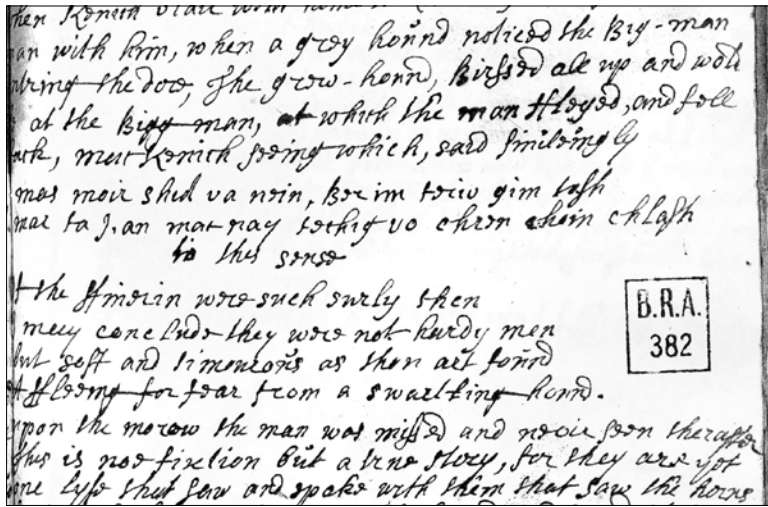 hen Kenich
an with him, when a grey hound noticed the Big-man
the dore, The grew-hound, Birssed all up and wold
at the Bigg-man, at which the man ffleyed, and fell
ack, Kenich seeing which, said smileingly
mas moir shid va nein, Ber im terw gim
mar ta Jan mat nay techig vo chren choin chlash
in this sense
the were such surly then
mey conclude they were not hardy men
but soft and timourous as thou art found
ffleeing for fear from a swarling hound.
upon the morow the man was missed and never seen therafter
This is noe fixtion but a true story, for they are yet
lyfe that saw and spake with them that saw the horns
B.R.A.
382